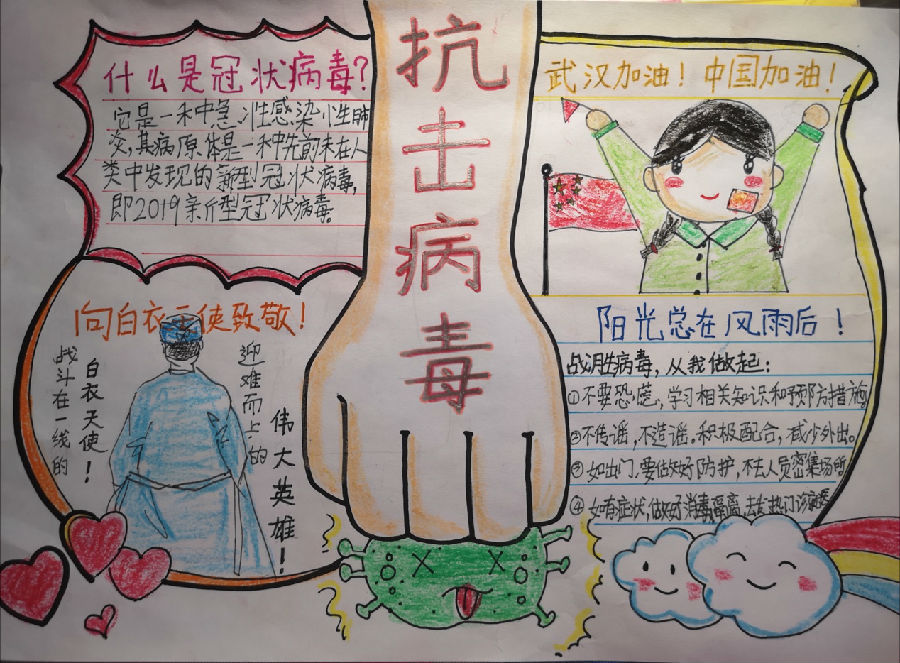 抗击病毒
什么是冠状病毒?
它是一种急性感染性肺
炎,其病原体是一种先前未在人
类中发现的新型冠状病毒,
即2019新型冠状病毒
武汉加油!中国加油!
向白衣天使致敬!
战斗在一线的
白衣天使!
迎难而上的
伟大英雄!
阳光总在风雨后!
战胜病毒,从我做起:
①不要恐慌,学习相关知识和预防措施
②不传谣,不造谣。积极配合,减少外出。
③如出门,要做好防护,不去人员密集场所
④如有症状,做好消毒隔离,去热门诊